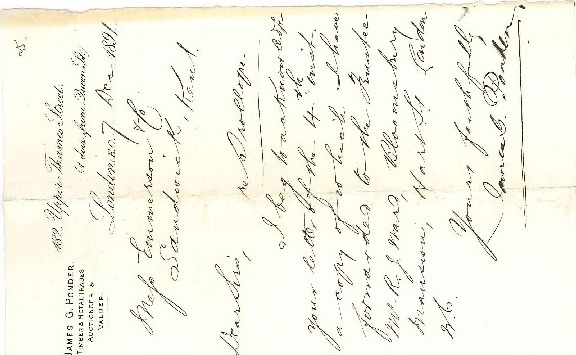 JAMES G. PONDER.
TIMBER & METAL TRADES
AUCTIONEER &
VALUER.
189, Upper Thames Street,
London, E.C. 7 Dec 1891
Messrs Emmerson & Co
Sandwich, Kent.
Dear Sirs,
re Trollope.
I beg to acknowledge
your letter of the 4th inst.
a copy of which I have
forwarded to the Trustee
Mr R. J. Ward, Bloomsbury
Mansions, Hart St London
W.C.
Yours faithfully
James G. Ponder.